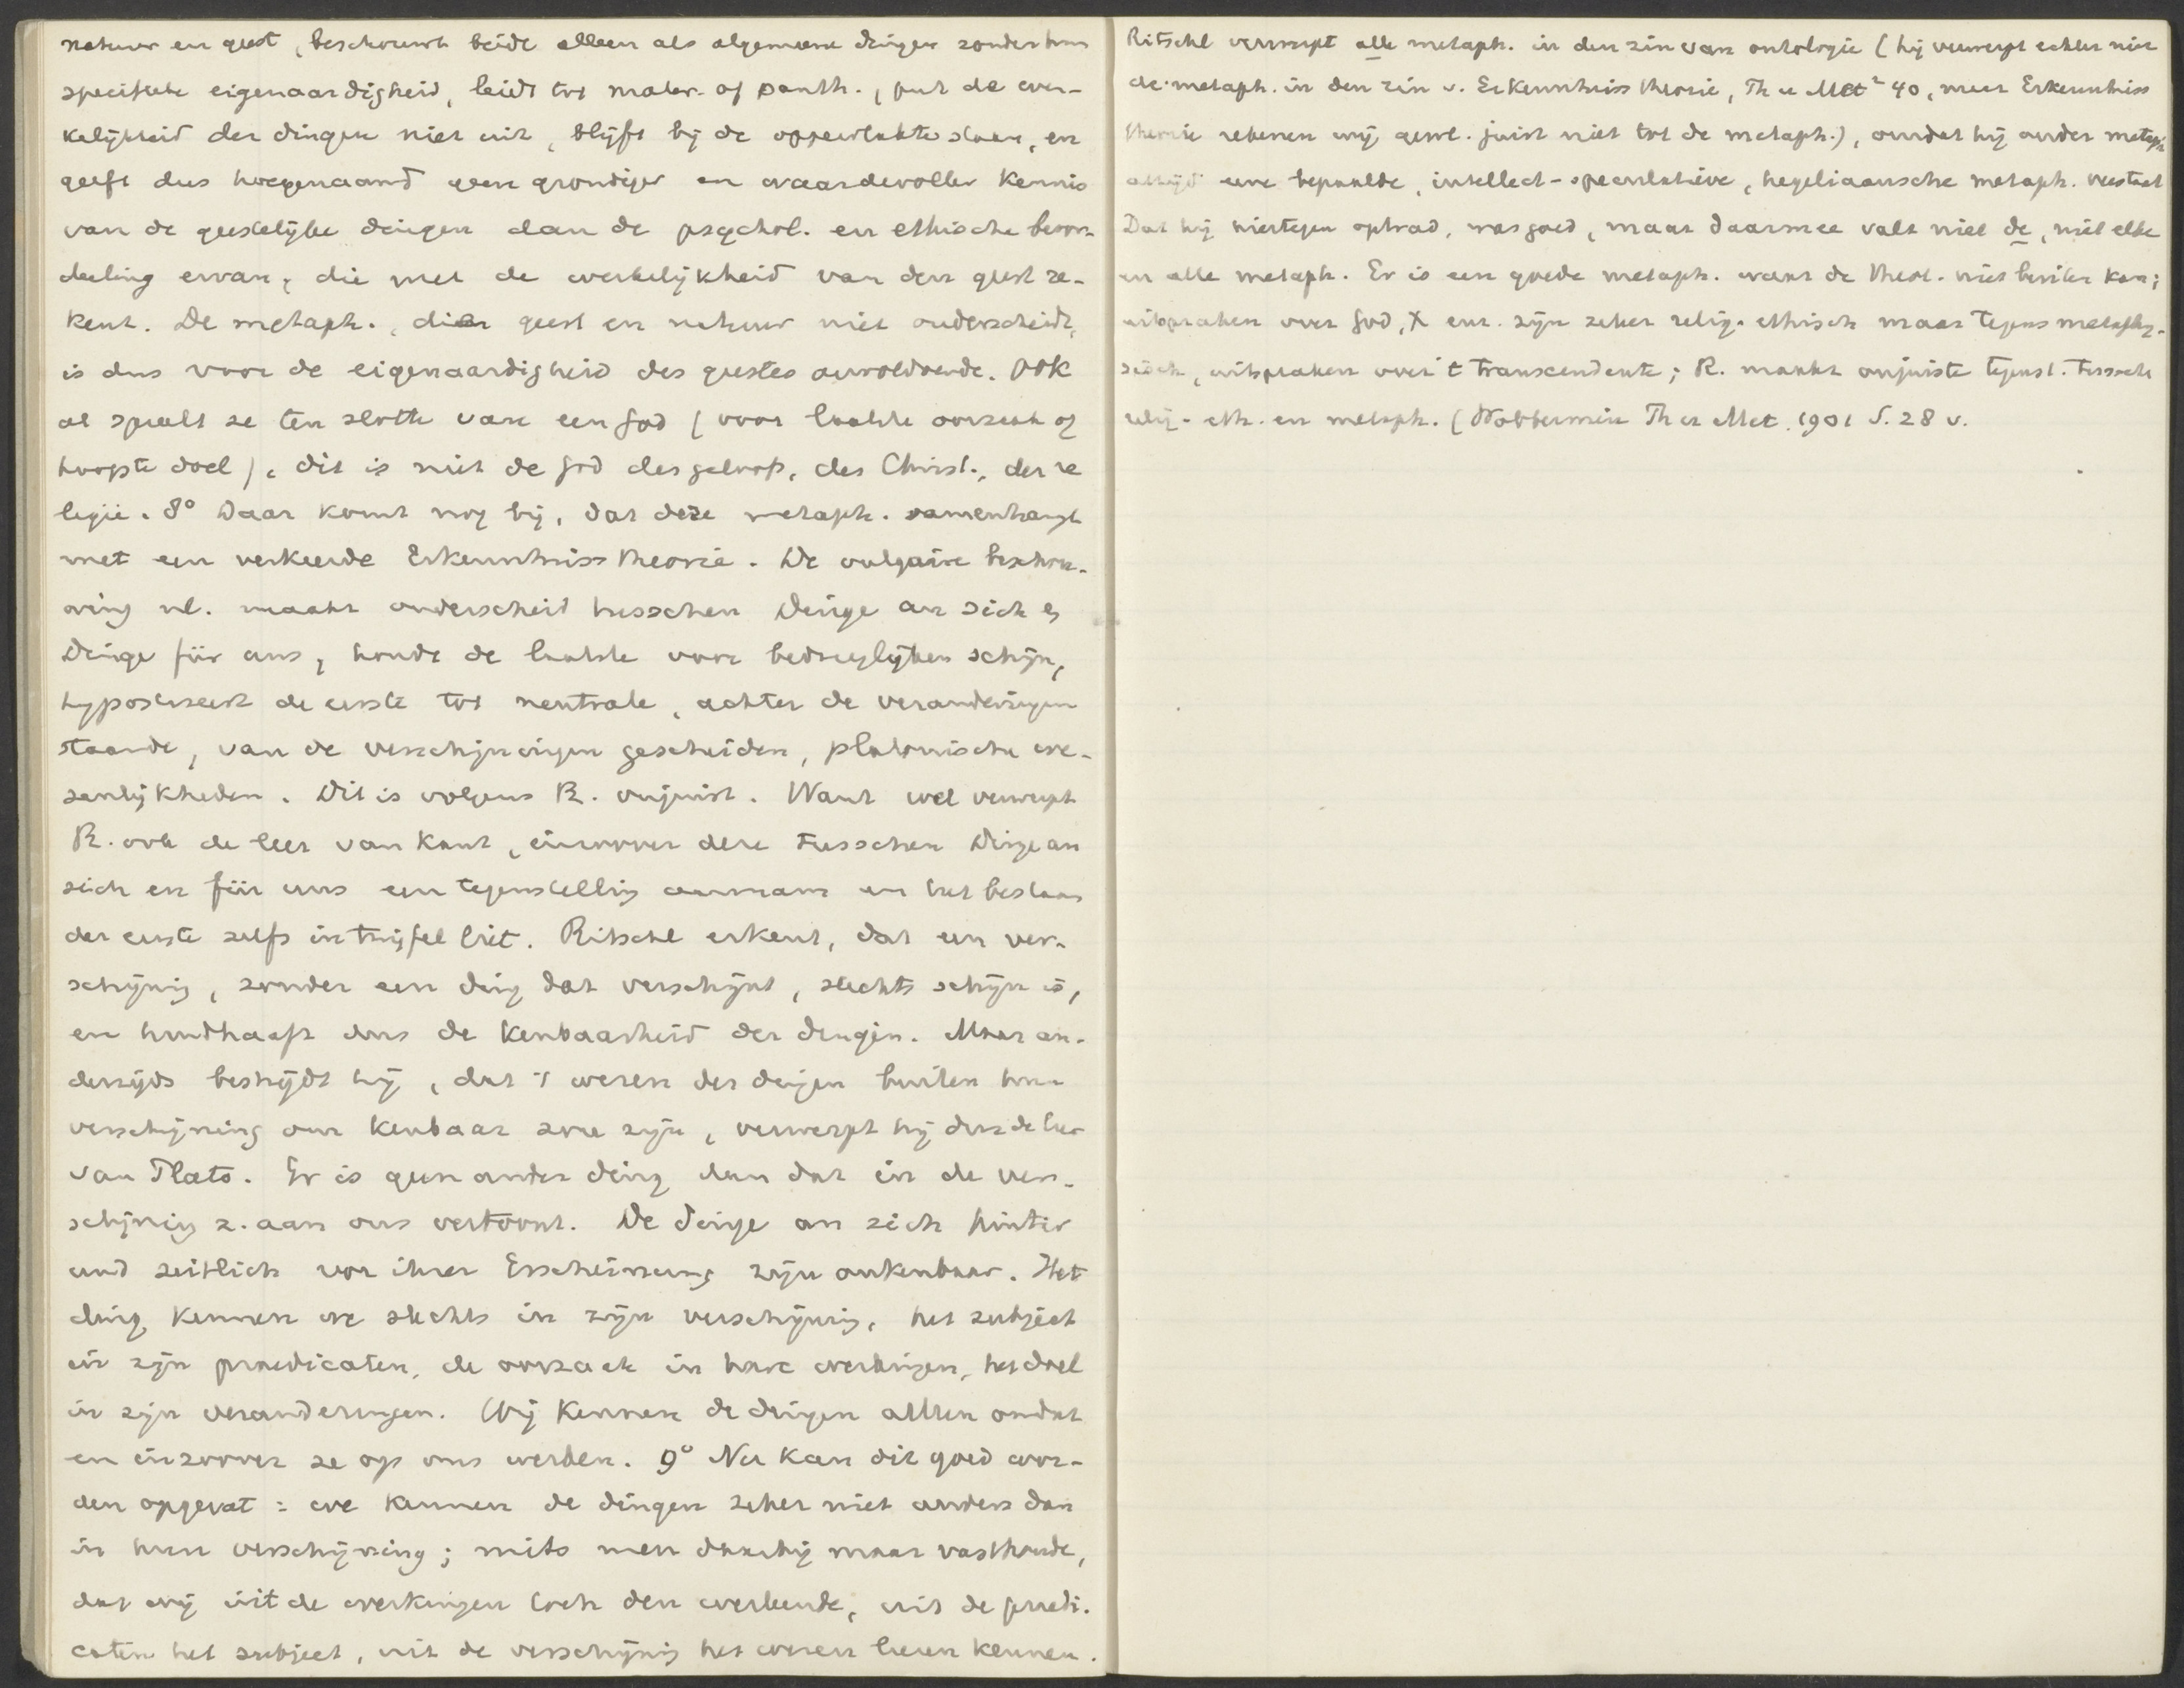 natuur en geest, beschouwt beide alleen als algemeene dingen zonder hun
specifieke eigenaardigheid, leidt tot mater. of panth., put de wer-
kelijkheid der dingen niet uit, blijft bij de oppervlakte staan, en
geeft dus hoegenaamd geen grondiger en waardevoller kennis
van de geestelijke dingen dan de psychol. en ethische beoor-
deeling ervan, die met de werkelijkheid van den geest re-
kent. De metaph., die geest en natuur niet onderscheidt,
is dus voor de eigenaardigheid des geestes onvoldoende. Ook
al spreekt ze ten slotte van een God (voor laatste oorzaak of
hoogste doel), dit is niet de God des geloofs, des Christ., der re
ligie. 8° Daar komt nog bij, dat deze metaph. samenhangt
met een verkeerde Erkenntniss theorie. De vulgaire beschou-
wing nl. maakt onderscheid tusschen Dinge an sich en
Dinge für uns, houdt de laatste voor bedriegelijken schijn,
hyposteseert de eerste tot neutrale, achter de veranderingen
staande, van de verschijningen gescheiden, platonische we-
zenlijkheden. Dit is volgens R. onjuist. Want wel verwerpt
R. ook de leer van Kant, inzoover deze tusschen Dinge an
sich en für uns een tegenstelling aannam en het bestaan
der eerste zelfs in twijfel liet. Ritschl erkent, dat een ver-
schijning, zonder een ding dat verschijnt, slechts schijn is,
en handhaaft dus de kenbaarheid der dingen. Maar an-
derzijds bestrijdt hij, dat 't wezen der dingen buiten hun
verschijning om kenbaar zou zijn, verwerpt hij dus de leer
van Plato. Er is geen ander ding dan dat in de ver-
schijning z. aan ons vertoont. De Dinge an sich hinter
und zeitlich vor ihrer Erscheinung zijn onkenbaar. Het
ding kennen we slechts in zijn verschijning, het subject
in zijn praedicaten, de oorzaak in hare werkingen, het doel
in zijn veranderingen. Wij kennen de dingen alleen omdat
en inzoover ze op ons werken. 9° Nu kan dit goed wor-
den opgevat: we kennen de dingen zeker niet anders dan
in hun verschijning; mits men daarbij maar vasthoude,
dat wij uit de werkingen toch den werkende, uit de praedi-
caten het subject, uit de verschijning het wezen leeren kennen.
Ritschl verwerpt alle metaph. in den zin van ontologie (hij verwerpt echter niet
de metaph. in den zin v. Erkenntniss theorie, Th u Met² 40, maar Erkenntniss
theorie rekenen wij gewl. juist niet tot de metaph.), omdat hij onder metaph
altijd eene bepaalde, intellect-speculatieve, hegeliaansche metaph. verstaat
Dat hij hiertegen optrad, was goed, maar daarmee valt niet de, niet elke
en alle metaph. Er is een goede metaph. waar de theol. niet buiten kan;
uitspraken over God, X enz. zijn zeker relig. ethisch maar tegens metaphy-
sisch, uitspraken over 't transcendente; R. maakt onjuiste tegenst. tusschen
relig- eth. en metaph. (Wobbermin Th u Met. 1901 S. 28 v.